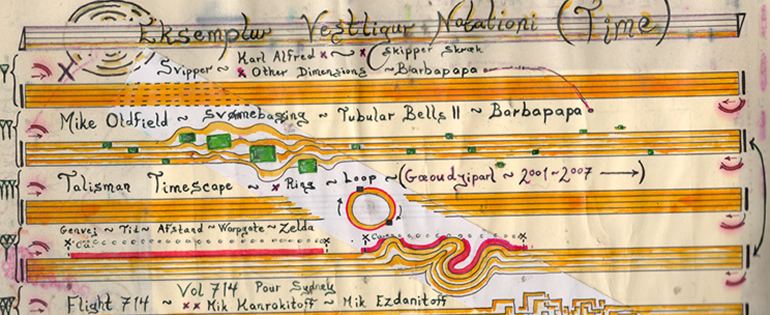 Eksemplur Vesttigur Notationi (Time)
Karl Alfred x ~ x Skipper Skræk
Svipper ~ x Other Dimensions ~ Barbapapa
Mike Oldfield ~ Svømmebassing ~ Tubular Bells II ~ Barbapapa
Talisman TimeScape ~ x Ring ~ Loop ~ ( ~ 2001~2007 →)
Genvej ~ Tit ~ Afstand ~ Warpgate ~ Zelda
Vol 714 Pour Sydney
Flight 714 ~ x x Mik Kanrokitoff ~ Mik Ezdanitoff